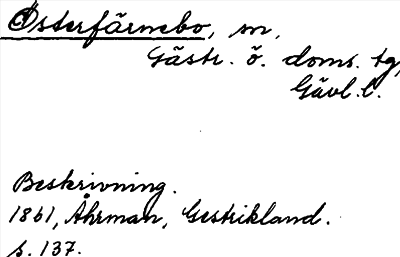 Österfärnebo, m,
Gästr. ö. doms. tg,
Gävl. l.
Beskrivning.
1861, Åhrman, Gestrikland.
s. 137.